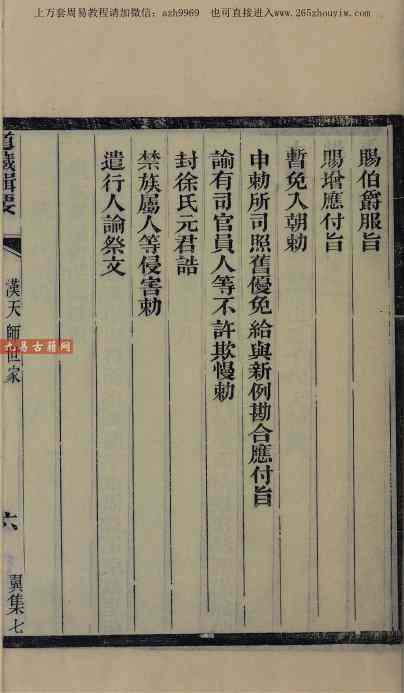 上万套周易教程请加微信：azh9969 也可直接进入www.265zhouyiw.com
賜伯爵服旨
賜增應付旨
暫免入朝勅
申勅所司照舊優免給與新例勘合應付旨
諭有司官員人等不許欺慢勅
封徐氏元君誥
禁族屬人等侵害勅
遣行人諭祭文
道藏輯要
漢天師世家
六
翼集七
九易古籍网